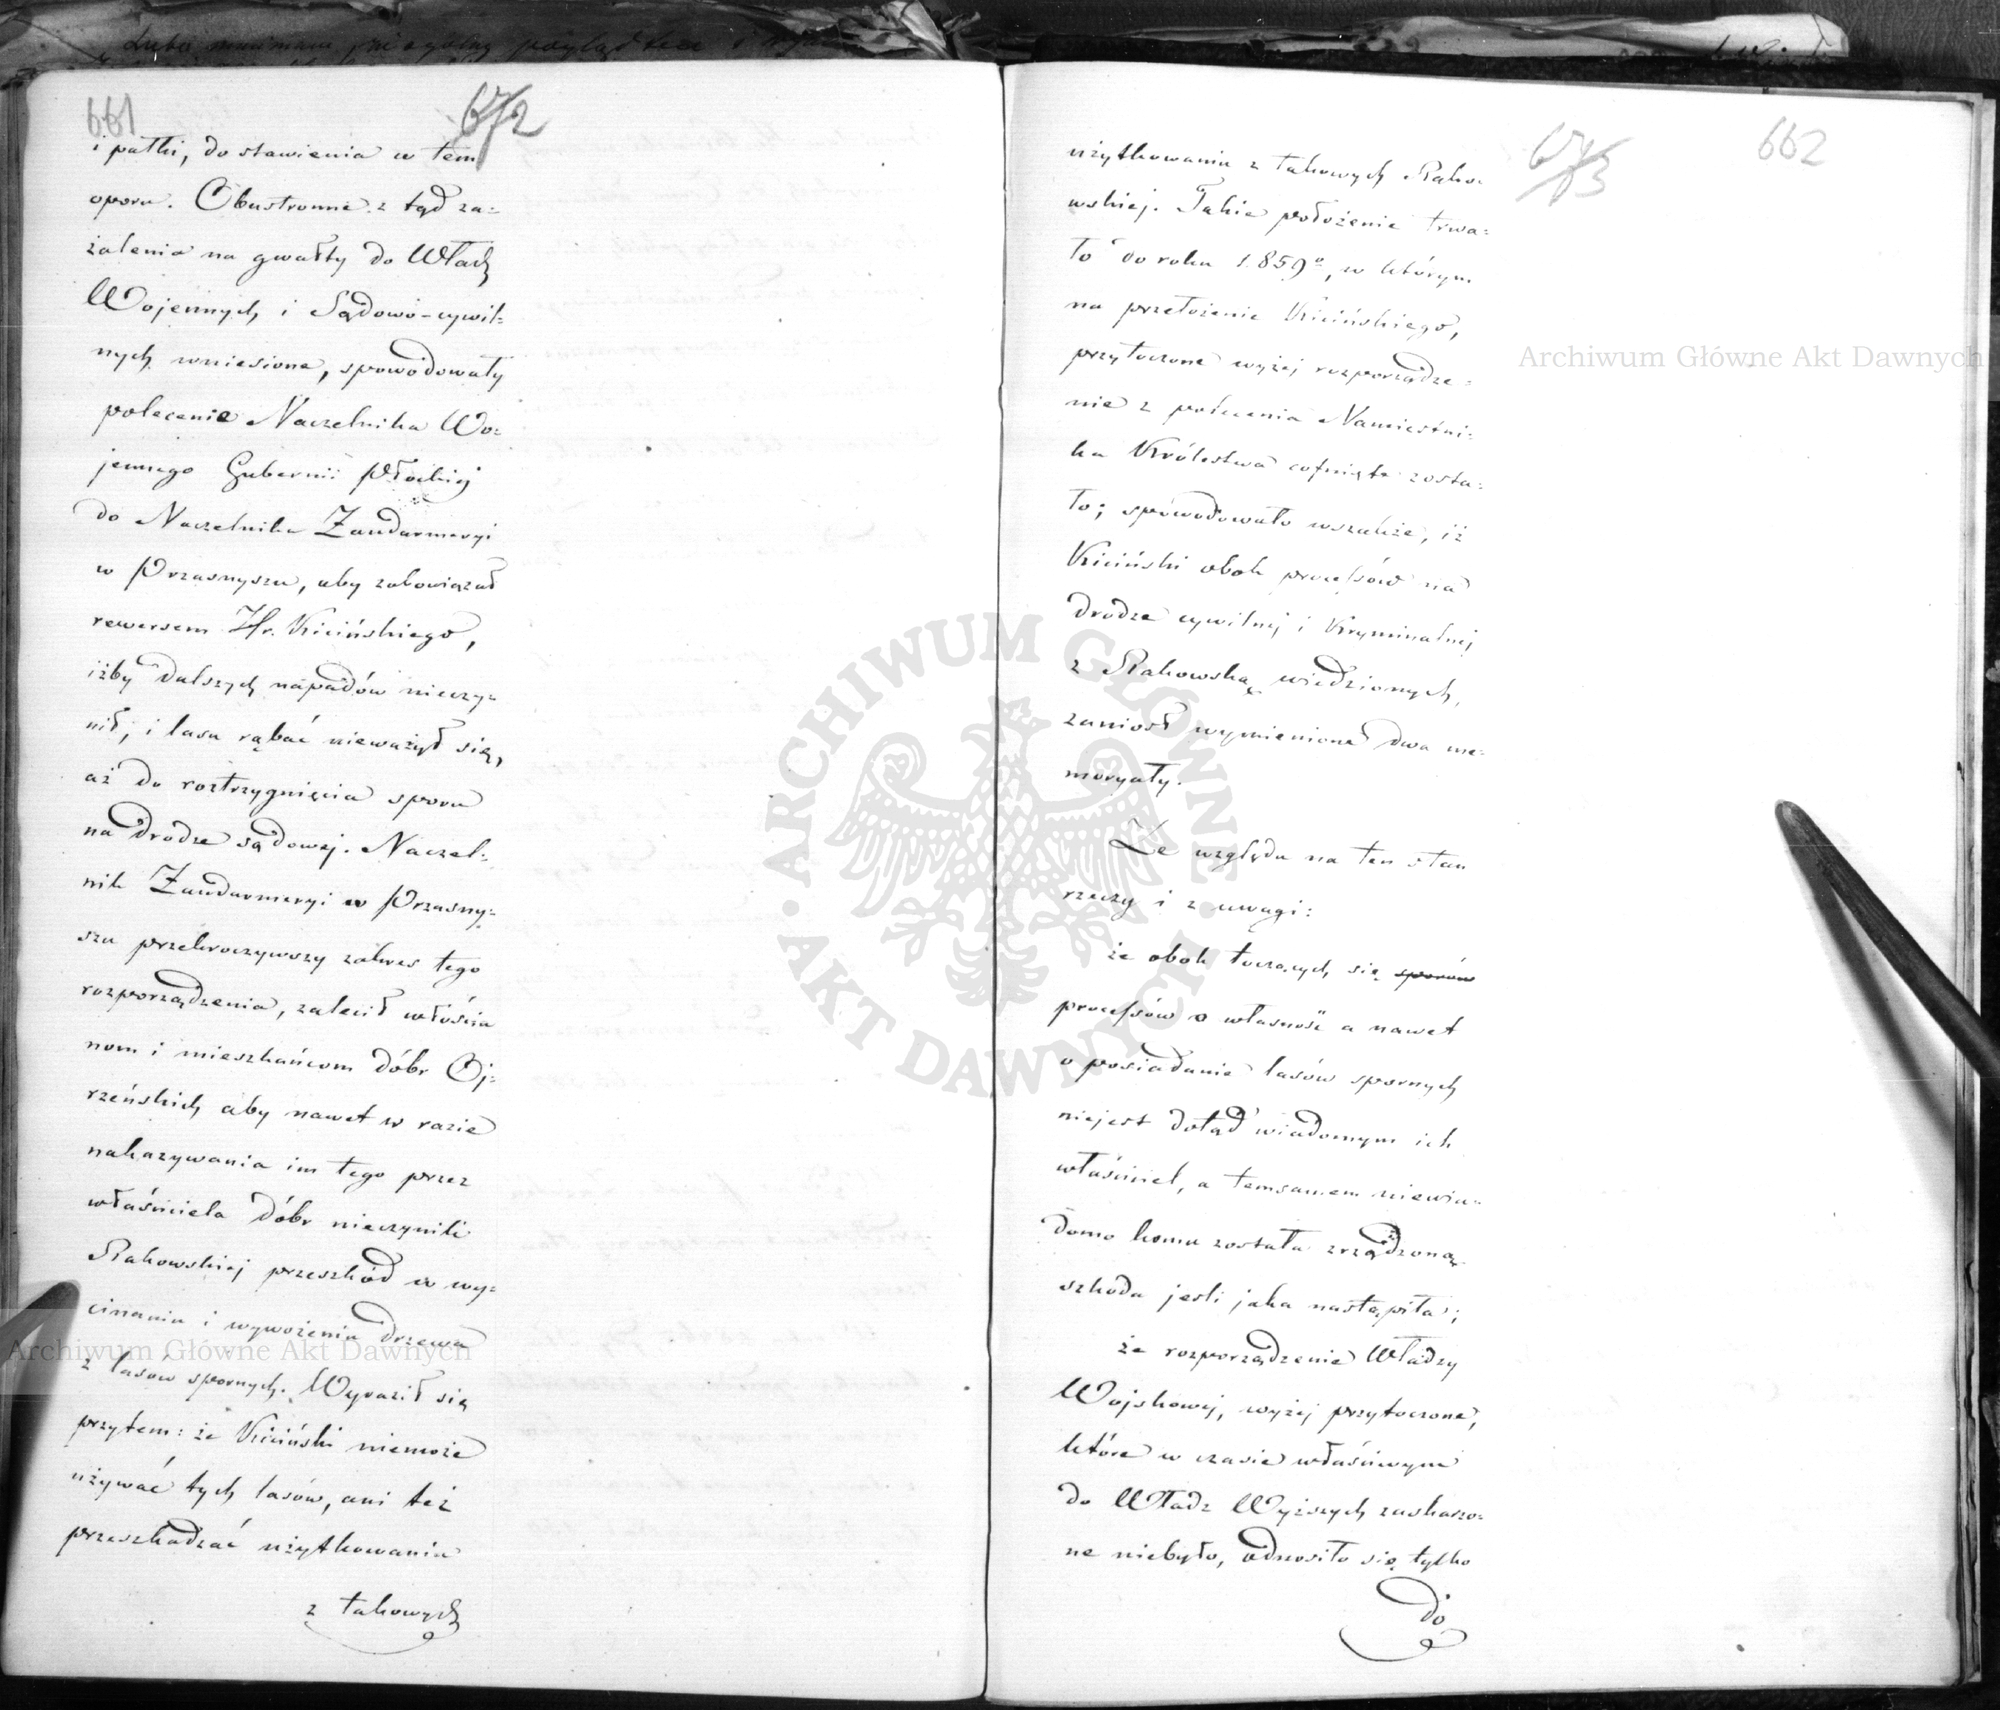 661
672
i pałki, do stawienia w tem
oporu. Obustronne z tąd za=
żalenia na gwałty do Władz
Wojennych i Sądowo-cywil=
nych wniesione, spowodowały
polecenie Naczelnika Wo=
jennego Gubernii Płockiej
do Naczelnika Żandarmeryi
w Przasnyszu, aby zobowiązał
rewersem Hr. Kicińskiego,
iżby dalszych napadów nieczy=
nił, i lasu rąbać nieważył się,
aż do roztrzygnięcia sporu
na drodze sądowej. Naczel=
nik Żandarmeryi w Przasny=
szu przekroczywszy zakres tego
rozporządzenia, zalecił włościa
nom i mieszkańcom dóbr Oj=
rzeńskich aby nawet w razie
nakazywania im tego przez
właściciela dóbr nieczynili
Rakowskiej przeszkód w wy=
cinaniu i wywożeniu drzewa
z lasów spornych. Wyraził się
przytem: że Kiciński niemoże
używać tych lasów, ani też
przeszkadzać użytkowania
z takowych
673
662
użytkowaniu z takowych Rako=
wskiej. Takie położenie trwa=
ło do roku 1859º, w którym
na przełożenie Kicińskiego,
przytoczone wyżej rozporządze=
nie z polecenia Namiestni=
ka Królestwa cofnięte zosta=
ło; spowodowało wszakże, iż
Kiciński obok processów na
drodze cywilnej i Kryminalnej
z Rakowską wiedzionych,
zaniosł wymienione dwa me=
moryały.
Ze względu na ten stan
rzeczy i z uwagi:
że obok toczących się sporów
processów o własność a nawet
o posiadanie lasów spornych
niejest dotąd wiadomym ich
właściciel, a temsamem niewia=
domo komu została zrządzoną
szkoda jeśli jaka nastąpiła;
że rozporządzenie Władzy
Wojskowej, wyżej przytoczone,
które w czasie właściwym
do Władz Wyższych zaskarżo=
ne niebyło, odnosiło się tylko
do
Archiwum Główne Akt Dawnych
Archiwum Główne Akt Dawnych
ARCHIWUM GŁÓWNE · AKT DAWNYCH ·